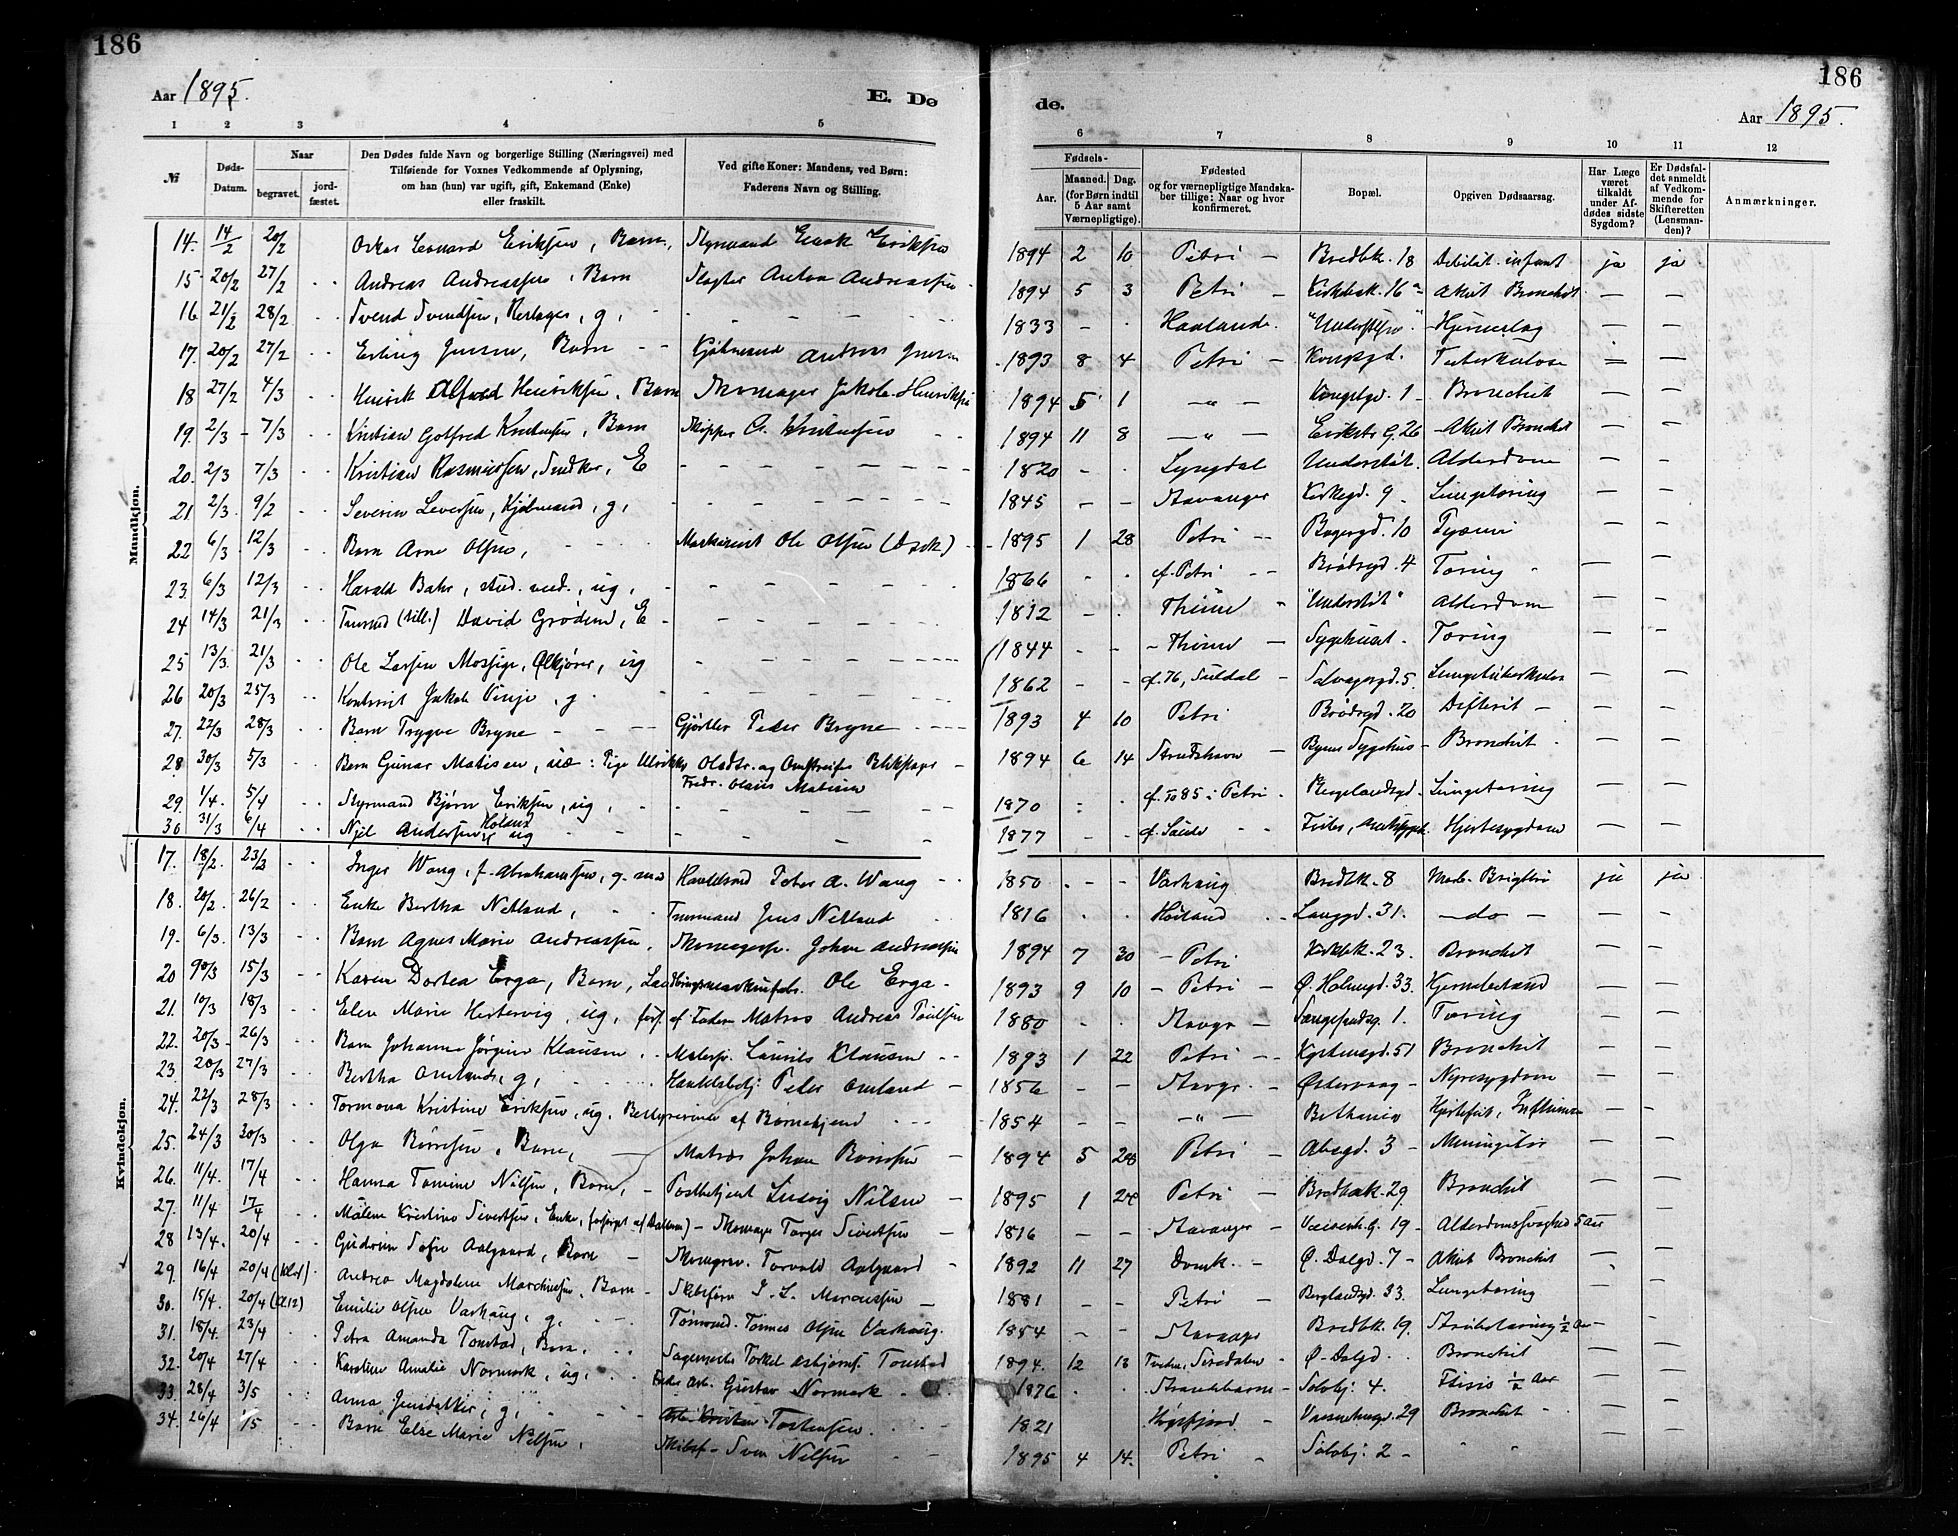 186
Aar 1895.
E. De
1 2 3 4 5
№ Døds-Datum. Naar begravet. jord-fæstet. Den Dødes fulde Navn og borgerlige Stilling (Næringsvei) med Tilføiende for Voxnes Vedkommende af Oplysning, om han (hun) var ugift, gift, Enkemand (Enke) eller fraskilt. Ved gifte Koner: Mandens, ved Børn: Faderens Navn og Stilling.
Mandkjøn.
14. 14/2 20/2 Oskar Leonard Eriksen, Barn, Styrmand Enok Eriksen
15 20/2 27/2 Andreas Andreassen, Barn Slagter Anton Andreassen
16 21/2 28/2 Svend Svendsen, g,
17. 20/2 27/2 Erling Jensen, Barn Kjøbmand Andreas Jensen
18 27/2 4/3 Henrik Alfred Henriksen, Barn Skomager Jakob Henriksen
19. 2/3 7/3 Kristian Gotfred Kristensen, Barn Skipper
20. 2/3 7/3 Kristian Rasmussen, Snedker, E
21 2/3. 9/2 Severin Severtsen, Kjøbmand, g,
22 6/3. 12/3 Barn Arne Olsen, Maskinist Ole Olsen
23. 6/3 12/3 Harald Bahr, stud. med., ug,
24 14/3 21/3 David Grødem, E
25 13/3. 21/3 Ole Larsen Mossige, Ølkjører, ug
26 20/3 25/3 Kontorist Jakob Vinje, g
27. 22/3 28/3 Barn Trygve Bryne Gjørtler Peder Bryne
28 30/3 5/3 Barn Gunar Matisen, uæ: Pige Ulrikke Olsdtr. og Omstreifer Fredr. Olaus Matisen
29. 1/4. 5/4 Styrmand Bjørn Eriksen, ug,
30 31/3 6/4 Njel Andersen Høland ug
Kvindekjøn.
17. 18/2. 23/2 Inger Wang, f. Abrahamsen, g. med Handelsmd Peter A. Wang
18. 20/2. 26/2 Enke Bertha Netland, Jens Netland
19. 6/3. 13/3 Barn Agnes Marie Andreassen, Johan Andreassen
20 9/3 15/3 Karen Dortea Erga, Barn, Ole Erga
21. 10/3 18/3 Elen Marie Hertervig, ug, fors. af Fader Matros Andreas Poulsen
22. 20/3 26/3 Barn Johanne Jørgine Klausen, Malersv. Laurits Klausen
23. 20/3 27/3 Bertha Omland, g, Handelsbetj. Peder Omland
24. 22/3 28/3 Tormona Kristine Eriksen, ug. Bestyrerinde af Børnehjem
25. 24/3 30/3 Olga Børresen, Barn, Matros Johan Børresen
26. 11/4. 17/4 Hanna Tomine Nilsen, Barn, Postbetjent Ludvig Nilsen
27. 11/4 17/4 Målene Kristine Sivertsen, Enke, forsørget af Datteren) Skomager Torger Sivertsen
28 13/4. 20/4 Gudrun Sofie Aalgaard, Barn Torvald Aalgaard
29. 16/4 20/4 Andrea Magdalene Marcussen, Barn Skibsfører I. L. Marcussen
30. 15/4. 20/4 Emilie Olsen Varhaug, g, Tønnes Olsen Varhaug.
31. 18/4. 23/4 Petra Amanda Tonstad, Barn, Sagemester Torkel Asbjørns. Tonstad
32. 20/4 27/4 Karoline Amalie Normark, ug, Gustav Normark
33. 28/4 3/5 Anna Jensdatter, g, Tostensen
34. 26/4 1/5 Barn Else Marie Nilsen, Sven Nilsen
186
de.
Aar 1895.
6 7 8 9 10 11 12
Fødsels- Aar. Maaned. Dag. (for Børn indtil 5 Aar samt Værnepligtige). Fødested og for værnepligtige Mandskaber tillige: Naar og hvor konfirmeret. Bopæl. Opgiven Dødsaarsag. Har Læge været tilkaldt under Afdødes sidste Sygdom? Er Dødsfaldet anmeldt af Vedkommende for Skifteretten (Lensmanden)? Anmærkninger.
1894 2 10 Petri Bredbk. 18 Debilit. infant ja ja
1894 5 3 Petri Kirkebak. 16 Akut Bronchit. — —
1833 Haaland "Understøt." Hjerneslag — —
1893 8 4 Petri Kongsgd. Tuberkulose — —
1894 5 1 —„— Kongsgd. 1 Bronchit — —
1894 11 8 —„— Erikstr. G. 26 Akut Bronchit — —
1820 Lyngdal Understøt. Alderdom — —
1845 Stavanger Kirkegd. 9 Lungetæring — —
1895 1 28 Petri Bagergd. 10 Pyæmi — —
1866 f. Petri Brødregd. 4 Tæring — —
1812 Thime "Understøt" Alderdom — —
1844 Thime Sygehuset Tæring — —
1862 f. 76, Suldal Salvagergd. 5. Lungetuberkulose — —
1893 4 10 Petri Brødregd. 20 Difterit — —
1894 6 14 Byens Sygehus Bronchit — —
1870 f. 85 i Petri Bergelandsgd. Lungetæring — —
1877 Hjertesygdom — —
1850 Varhaug Bredbk. 8 Morb. Brightii ja ja
1816 Høiland Langgd. 31. —do— — —
1894 7 30 Petri Kirkbk. 23. Bronchit — —
1893 9 10 Petri Ø. Holmegd. 33. Hjernebetænd — —
1880 Stavgr 1. Tæring — —
1893 1 22 Petri 51 Bronchit — —
1856 Stavgr. Østervaag Nyresygdom — —
1854 —„— Bethania Hjertefeil, Influenza — —
1894 5 28 Petri 3 Meningitis — —
1895 1 24 Petri Bredbak. 29 Bronchit — —
1816 Stavanger Vaisenh. G. 19 Alderdomssvaghed 5 aar — —
1892 11 27 Domk. Ø. Dalgd. 7 Akut Bronchit — —
1881 Petri Berglandsgd. 33. Lungetæring — —
1854 Stavanger Bredbk. 19. Strubetæring ½ Aar — —
1894. 12 13 Siredalen Ø. Dalgd. Bronchit — —
1876 Strandebarm Solvbj. 4. Ftisis ½ Aar — —
1821 Høgsfjord 29 Bronchit — —
1895 4 14. Petri Solvbj: 2 „ „ — —